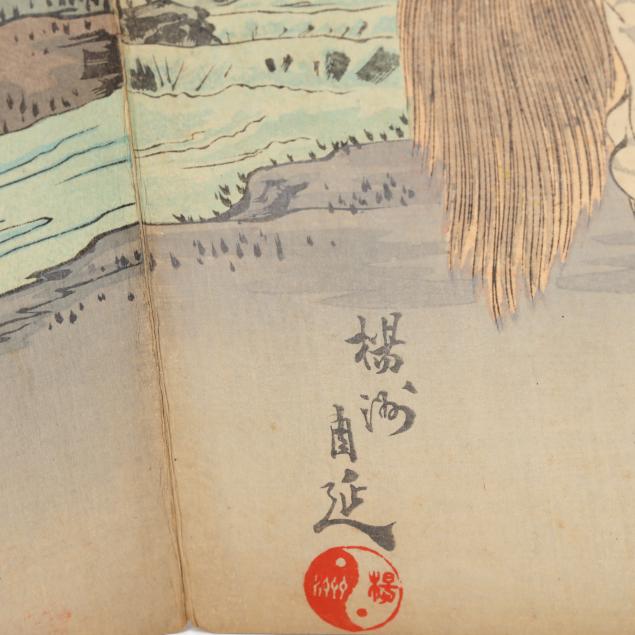 楊洲周延
楊